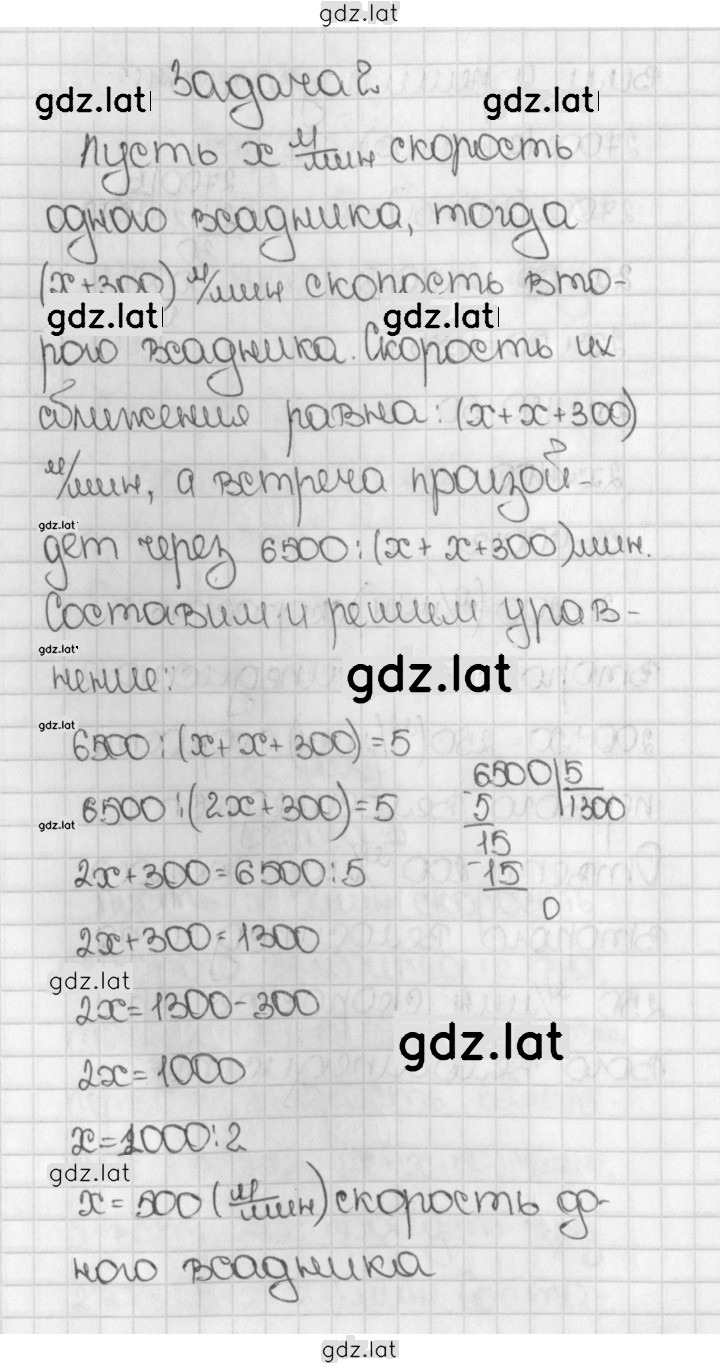 gdz.lat
Задача 2
gdz.lat gdz.lat
Пусть x м/мин скорость
одного всадника, тогда
(x+300) м/мин скорость вто-
gdz.lat gdz.lat
рого всадника. Скорость их
сближения равна: (x+x+300)
м/мин, а встреча произой-
gdz.lat
дет через 6500:(x+x+300) мин.
Составим и решим урав-
gdz.lat
нение:
gdz.lat
gdz.lat
6500:(x+x+300)=5
6500 5
6500:(2x+300)=5
-5 1300
gdz.lat
15
2x+300=6500:5
-15
0
2x+300=1300
gdz.lat
2x=1300-300
gdz.lat
2x=1000
x=1000:2
gdz.lat
x=500 (м/мин) скорость до-
ного всадника
gdz.lat